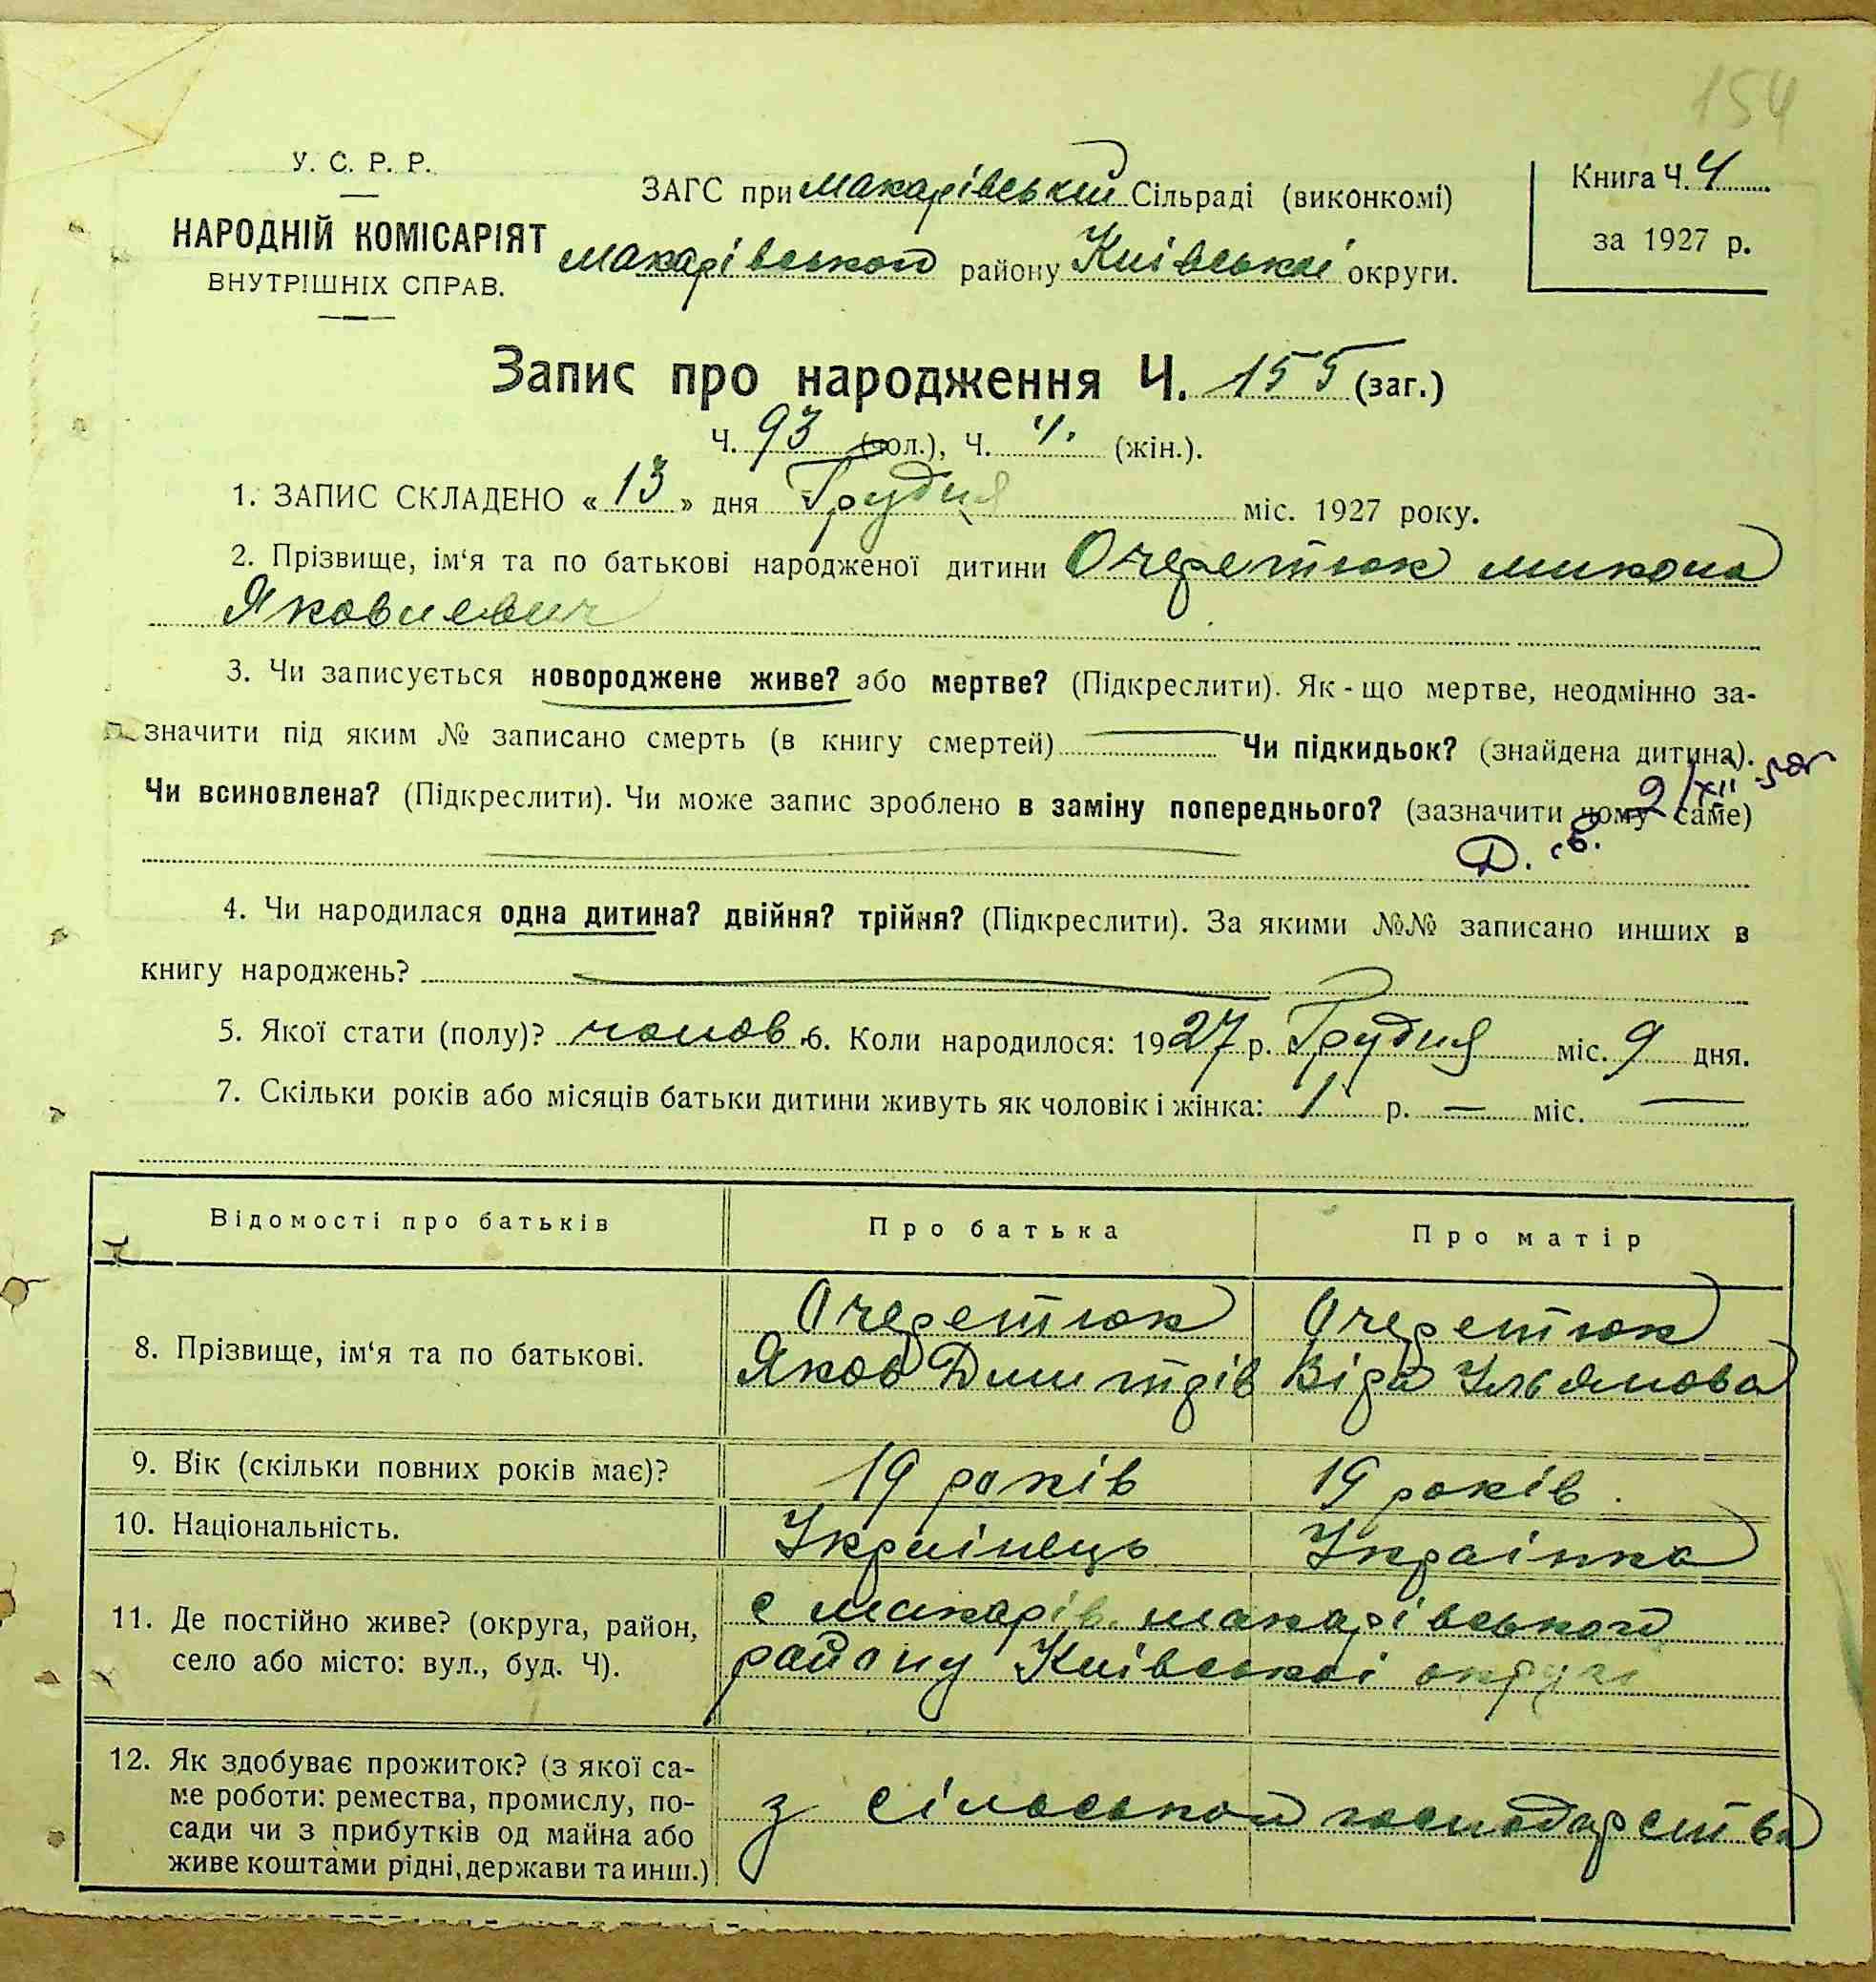 154
У. С. Р. Р.
НАРОДНІЙ КОМІСАРІЯТ
ВНУТРІШНІХ СПРАВ.
ЗАГС при Макарівській Сільраді (виконкомі)
Макарівського району Київської округи.
Книга Ч. 4
за 1927 р.
Запис про народження Ч. 155 (заг.)
Ч. 93 (чол.), Ч. (жін.).
1. ЗАПИС СКЛАДЕНО « 13 » дня Грудня міс. 1927 року.
2. Прізвище, ім‘я та по батькові народженої дитини Очеретюк Микола
Яковлевич
3. Чи записується новороджене живе? або мертве? (Підкреслити). Як-що мертве, неодмінно за-
значити під яким № записано смерть (в книгу смертей) — Чи підкидьок? (знайдена дитина).
Чи всиновлена? (Підкреслити). Чи може запис зроблено в заміну попереднього? (зазначити чому саме)
2/XII
Д. св.
4. Чи народилася одна дитина? двійня? трійня? (Підкреслити). За якими №№ записано инших в
книгу народжень? —
5. Якої стати (полу)? чолов. 6. Коли народилося: 1927 р. Грудня міс. 9 дня.
7. Скільки років або місяців батьки дитини живуть як чоловік і жінка: 1 р. — міс. —
Відомості про батьків Про батька Про матір
8. Прізвище, ім‘я та по батькові.
Очеретюк Очеретюк
Яков Дмитрів Віра Ільямова
9. Вік (скільки повних років має)? 19 років 19 років.
10. Національність. Українець Українка
11. Де постійно живе? (округа, район,
село або місто: вул., буд. Ч).
с Макарів. Макарівського
району Київської округи
12. Як здобуває прожиток? (з якої са-
ме роботи: ремества, промислу, по-
сади чи з прибутків од майна або
живе коштами рідні, держави та инш.)
з сільського господарства